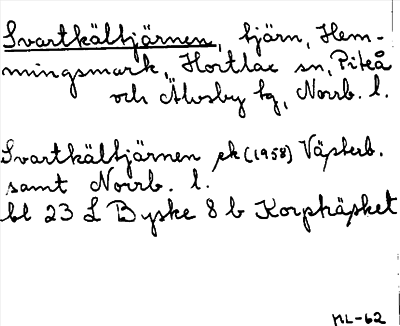 Svartkältjärnen, tjärn, Hem-
mingsmark, Hortlax sn, Piteå
och Älvsby kg, Norrb. l.
Svartkältjärnen ek (1958) Västerb.
samt Norrb. l.
bl 23 L Byske 8 b Korpkäsket
ML-62